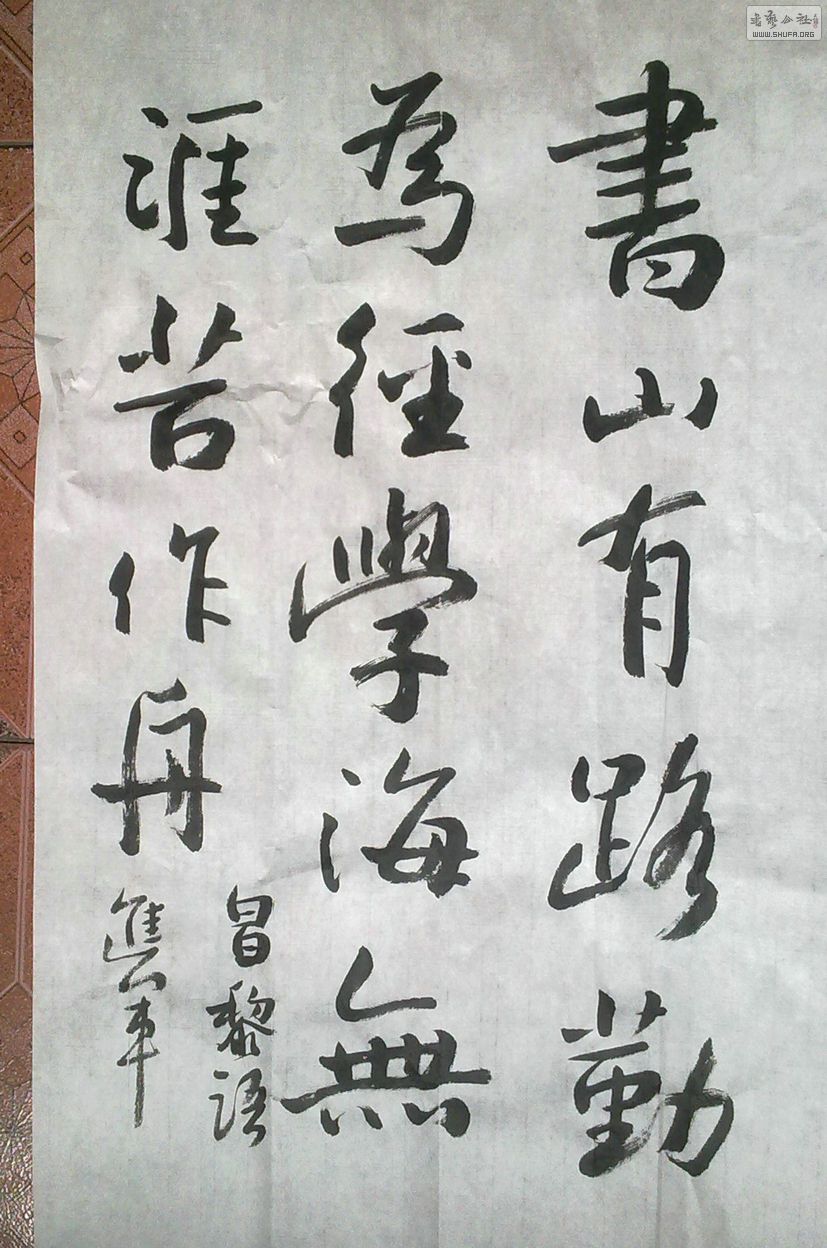 書山有路勤
為徑學海無
涯苦作舟
昌黎語
進軍
WWW.SHUFA.ORG